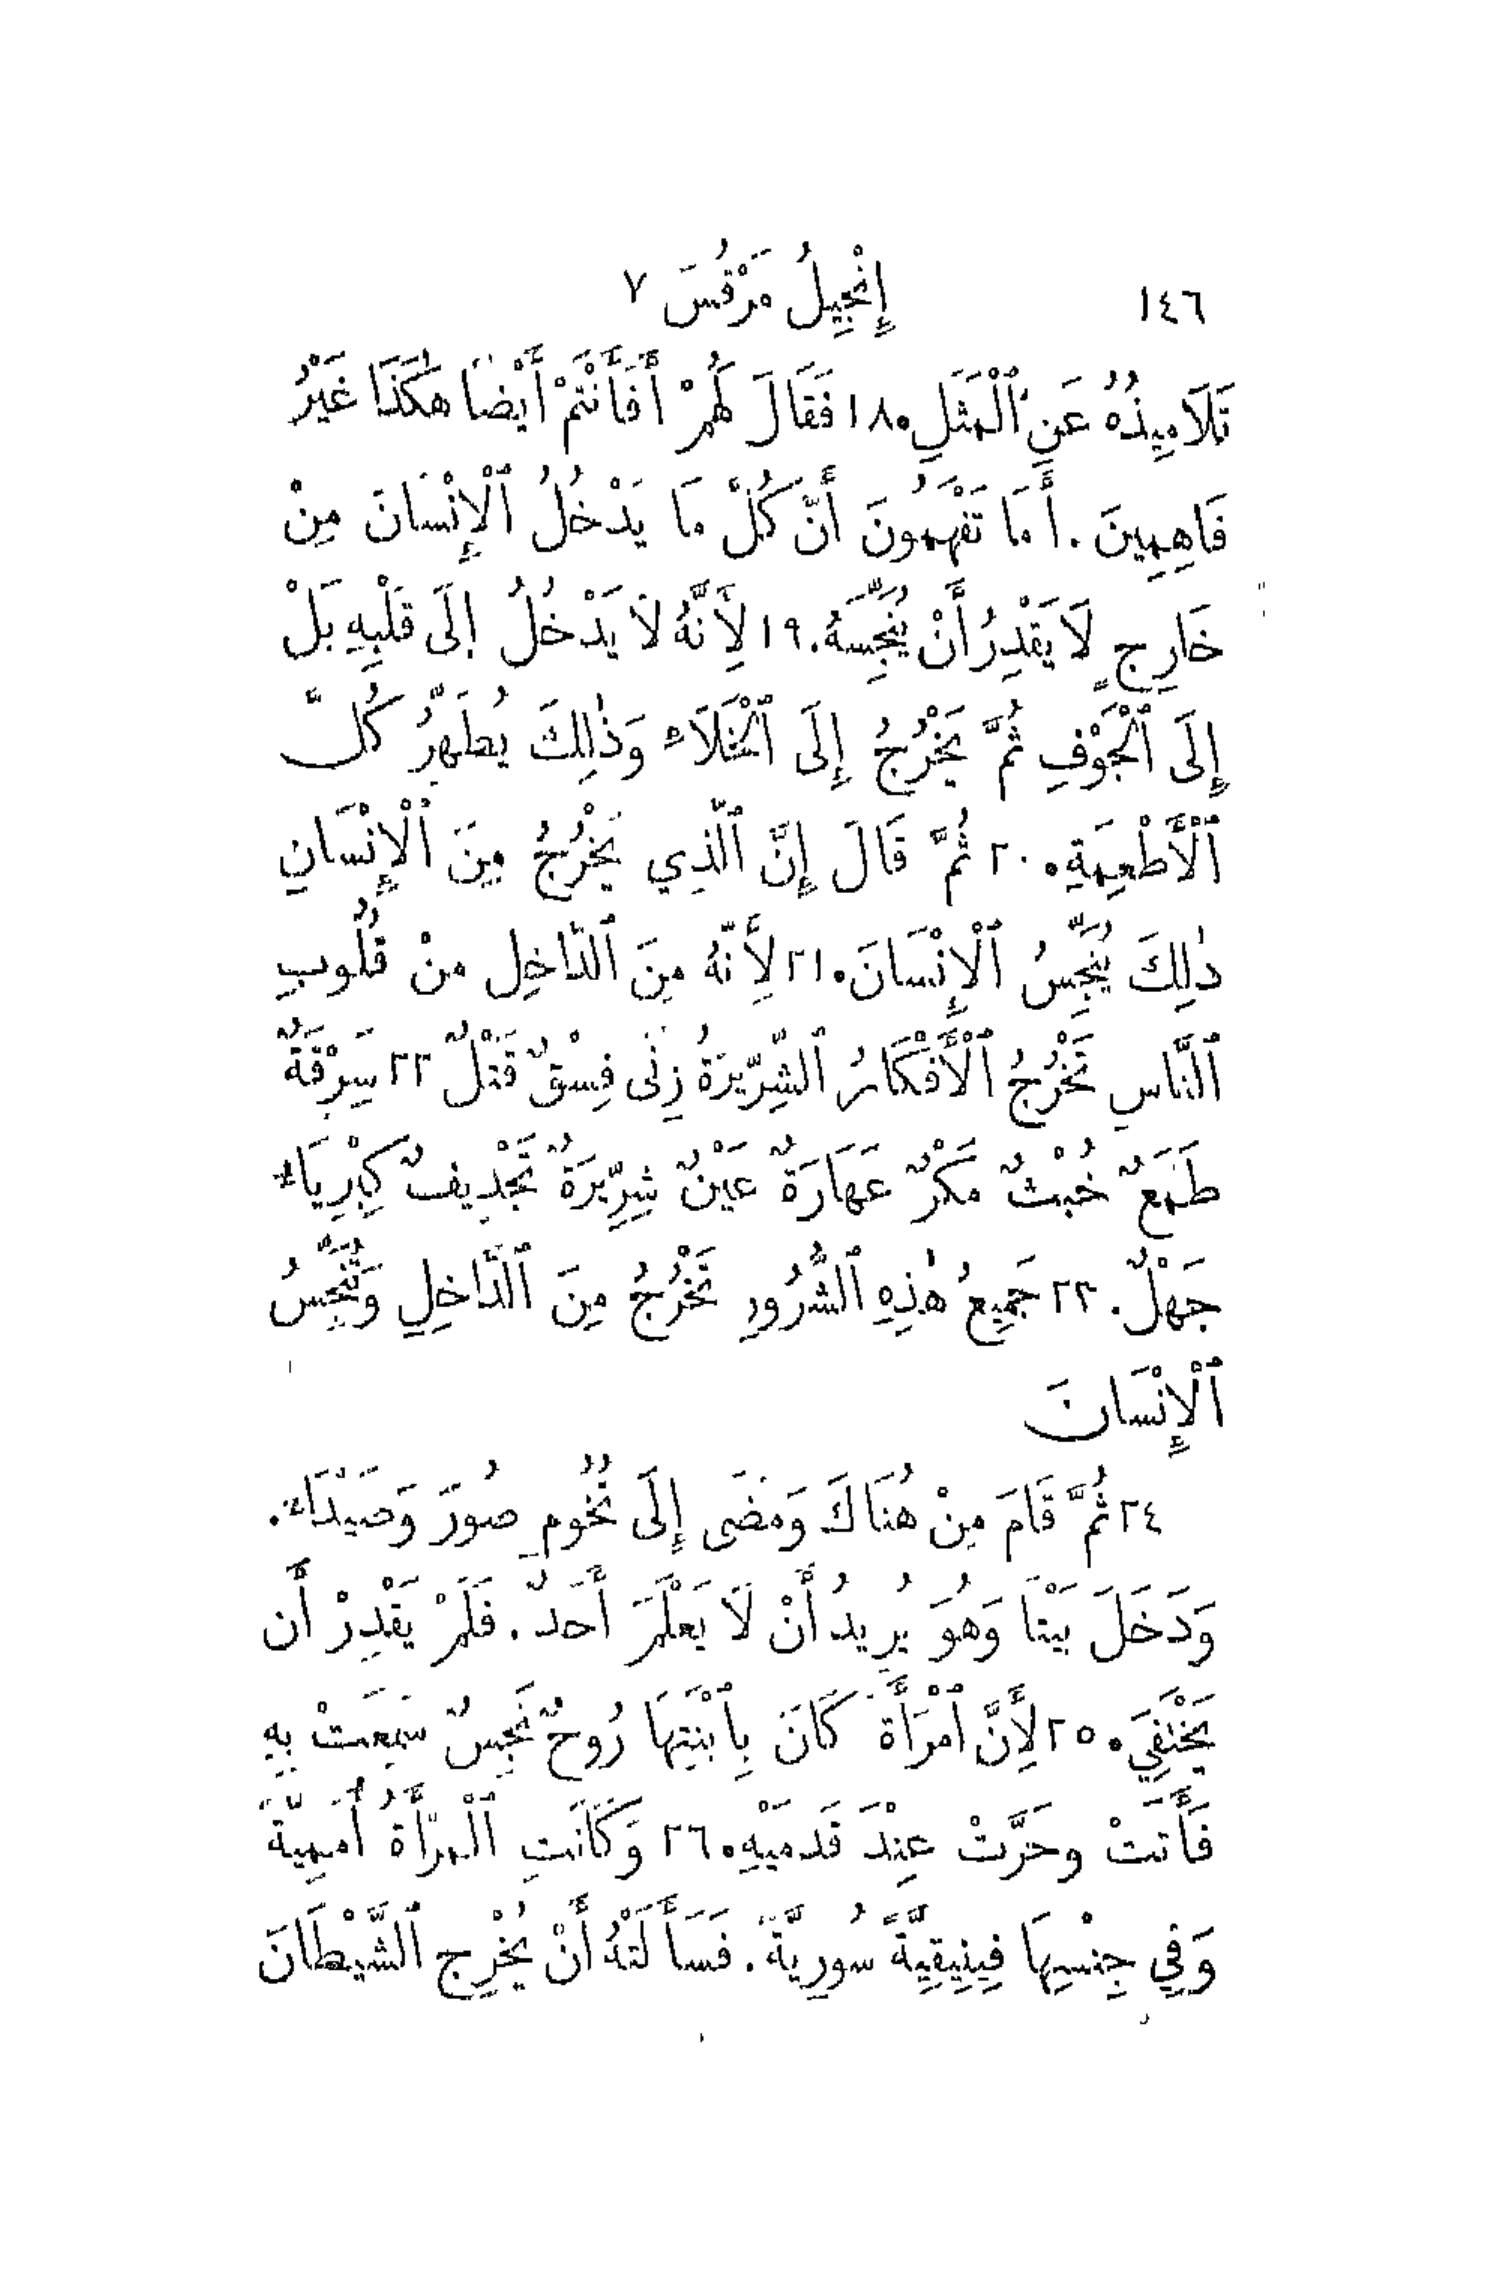 ١٤٦ إِنْجِيلُ مَرْقُسَ ٧
تَلَامِيذُهُ عَنِ ٱلْمَثَلِ. ١٨ فَقَالَ لَهُمْ أَفَأَنْتُمْ أَيْضًا هٰكَذَا غَيْرُ
فَاهِمِينَ. أَمَا تَفْهَمُونَ أَنَّ كُلَّ مَا يَدْخُلُ ٱلْإِنْسَانَ مِنْ
خَارِجٍ لَا يَقْدِرُ أَنْ يُنَجِّسَهُ. ١٩ لِأَنَّهُ لَا يَدْخُلُ إِلَى قَلْبِهِ بَلْ
إِلَى ٱلْجَوْفِ ثُمَّ يَخْرُجُ إِلَى ٱلْخَلَاءِ وَذٰلِكَ يُطَهِّرُ كُلَّ
ٱلْأَطْعِمَةِ. ٢٠ ثُمَّ قَالَ إِنَّ ٱلَّذِي يَخْرُجُ مِنَ ٱلْإِنْسَانِ
ذٰلِكَ يُنَجِّسُ ٱلْإِنْسَانَ. ٢١ لِأَنَّهُ مِنَ ٱلدَّاخِلِ مِنْ قُلُوبِ
ٱلنَّاسِ تَخْرُجُ ٱلْأَفْكَارُ ٱلشِّرِّيرَةُ زِنًى فِسْقٌ قَتْلٌ ٢٢ سِرْقَةٌ
طَمَعٌ خُبْثٌ مَكْرٌ عَهَارَةٌ عَيْنٌ شِرِّيرَةٌ تَجْدِيفٌ كِبْرِيَاءُ
جَهْلٌ. ٢٣ جَمِيعُ هٰذِهِ ٱلشُّرُورِ تَخْرُجُ مِنَ ٱلدَّاخِلِ وَتُنَجِّسُ
ٱلْإِنْسَانَ
٢٤ ثُمَّ قَامَ مِنْ هُنَاكَ وَمَضَى إِلَى تُخُومِ صُورَ وَصَيْدَاءَ.
وَدَخَلَ بَيْتًا وَهُوَ يُرِيدُ أَنْ لَا يَعْلَمَ أَحَدٌ. فَلَمْ يَقْدِرْ أَن
يَخْتَفِيَ. ٢٥ لِأَنَّ ٱمْرَأَةً كَانَ بِٱبْنَتِهَا رُوحٌ نَجِسٌ سَمِعَتْ بِهِ
فَأَتَتْ وخَرَّتْ عِنْدَ قَدَمَيْهِ. ٢٦ وَكَانَتِ ٱلْمَرْأَةُ أُمَمِيَّةً
وَفِي جِنْسِهَا فِينِيقِيَّةً سُورِيَّةً. فَسَأَلَتْهُ أَنْ يُخْرِجَ ٱلشَّيْطَانَ